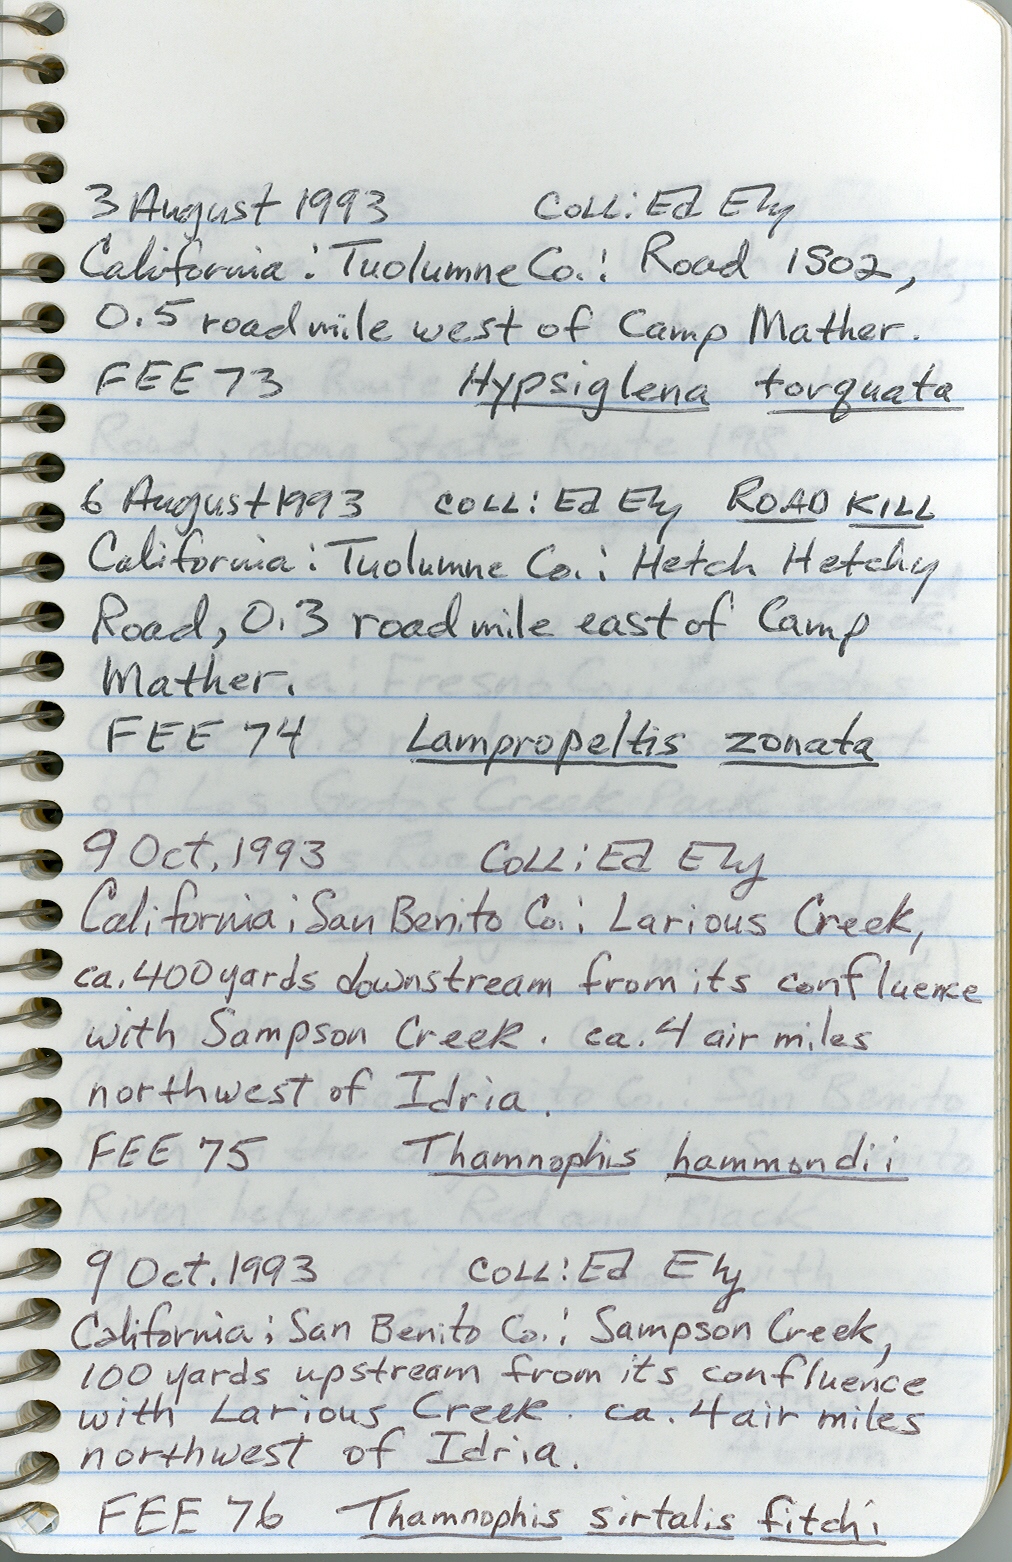 3 August 1993 COLL: Ed Ely
California: Tuolumne Co.: Road 1S02,
0.5 road mile west of Camp Mather.
FEE 73 Hypsiglena torquata
6 August 1993 COLL: Ed Ely ROAD KILL
California: Tuolumne Co.: Hetch Hetchy
Road, 0.3 road mile east of Camp
Mather.
FEE 74 Lampropeltis zonata
9 Oct. 1993 COLL: Ed Ely
California: San Benito Co.: Larious Creek,
ca. 400 yards downstream from its confluence
with Sampson Creek. ca. 4 air miles
northwest of Idria.
FEE 75 Thamnophis hammondii
9 Oct. 1993 COLL: Ed Ely
California: San Benito Co.: Sampson Creek,
100 yards upstream from its confluence
with Larious Creek. ca. 4 air miles
northwest of Idria.
FEE 76 Thamnophis sirtalis fitchi